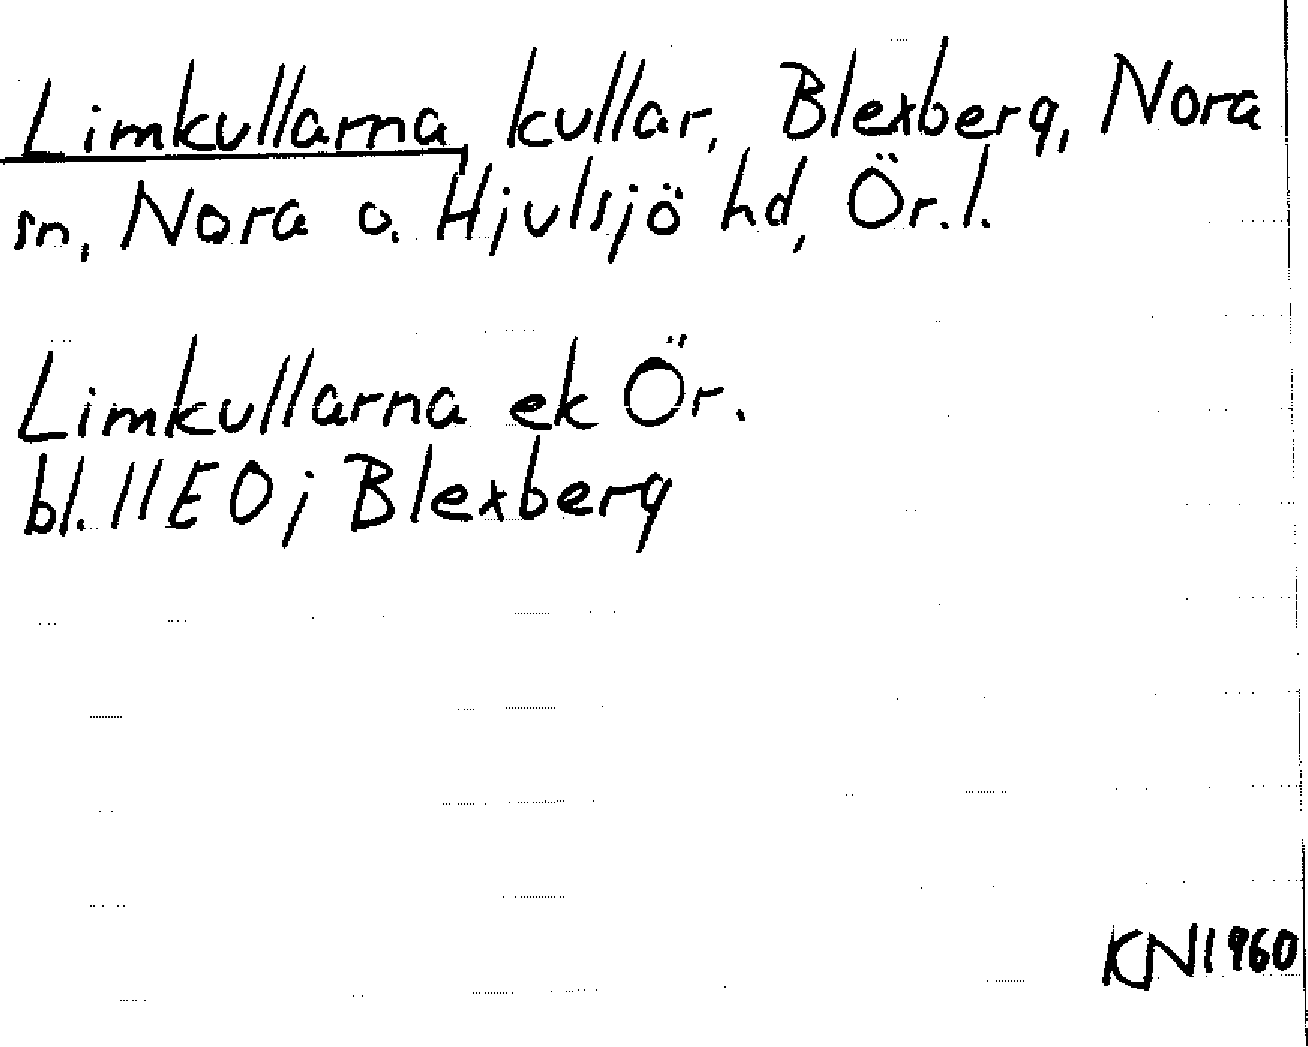 Limkullarna, kullar, Blexberg, Nora
sn, Nora o. Hjulsjö hd, Ör. l.
Limkullarna ek Ör.
bl. 11E0j Blexberg
KN1960